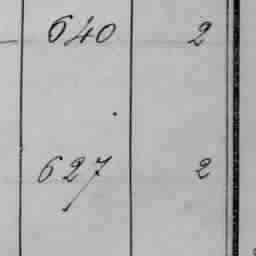 640 2
627 2